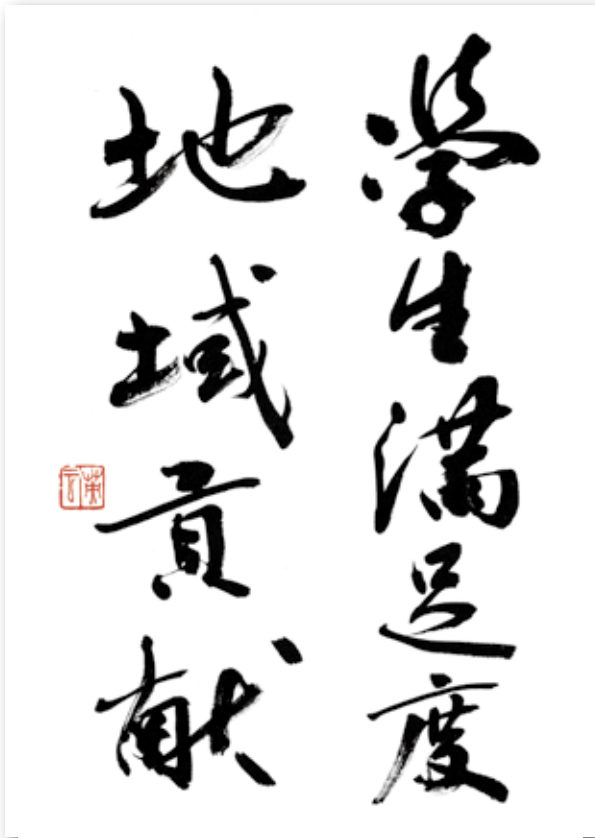 学生満足度
地域貢献